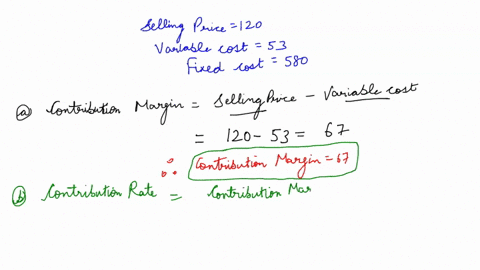 Selling Price = 120
Variable cost = 53
Fixed cost = 580
(a) Contribution Margin = Selling Price - Variable cost
= 120 - 53 = 67
∴ Contribution Margin = 67
(b) Contribution Rate = Contribution Mar